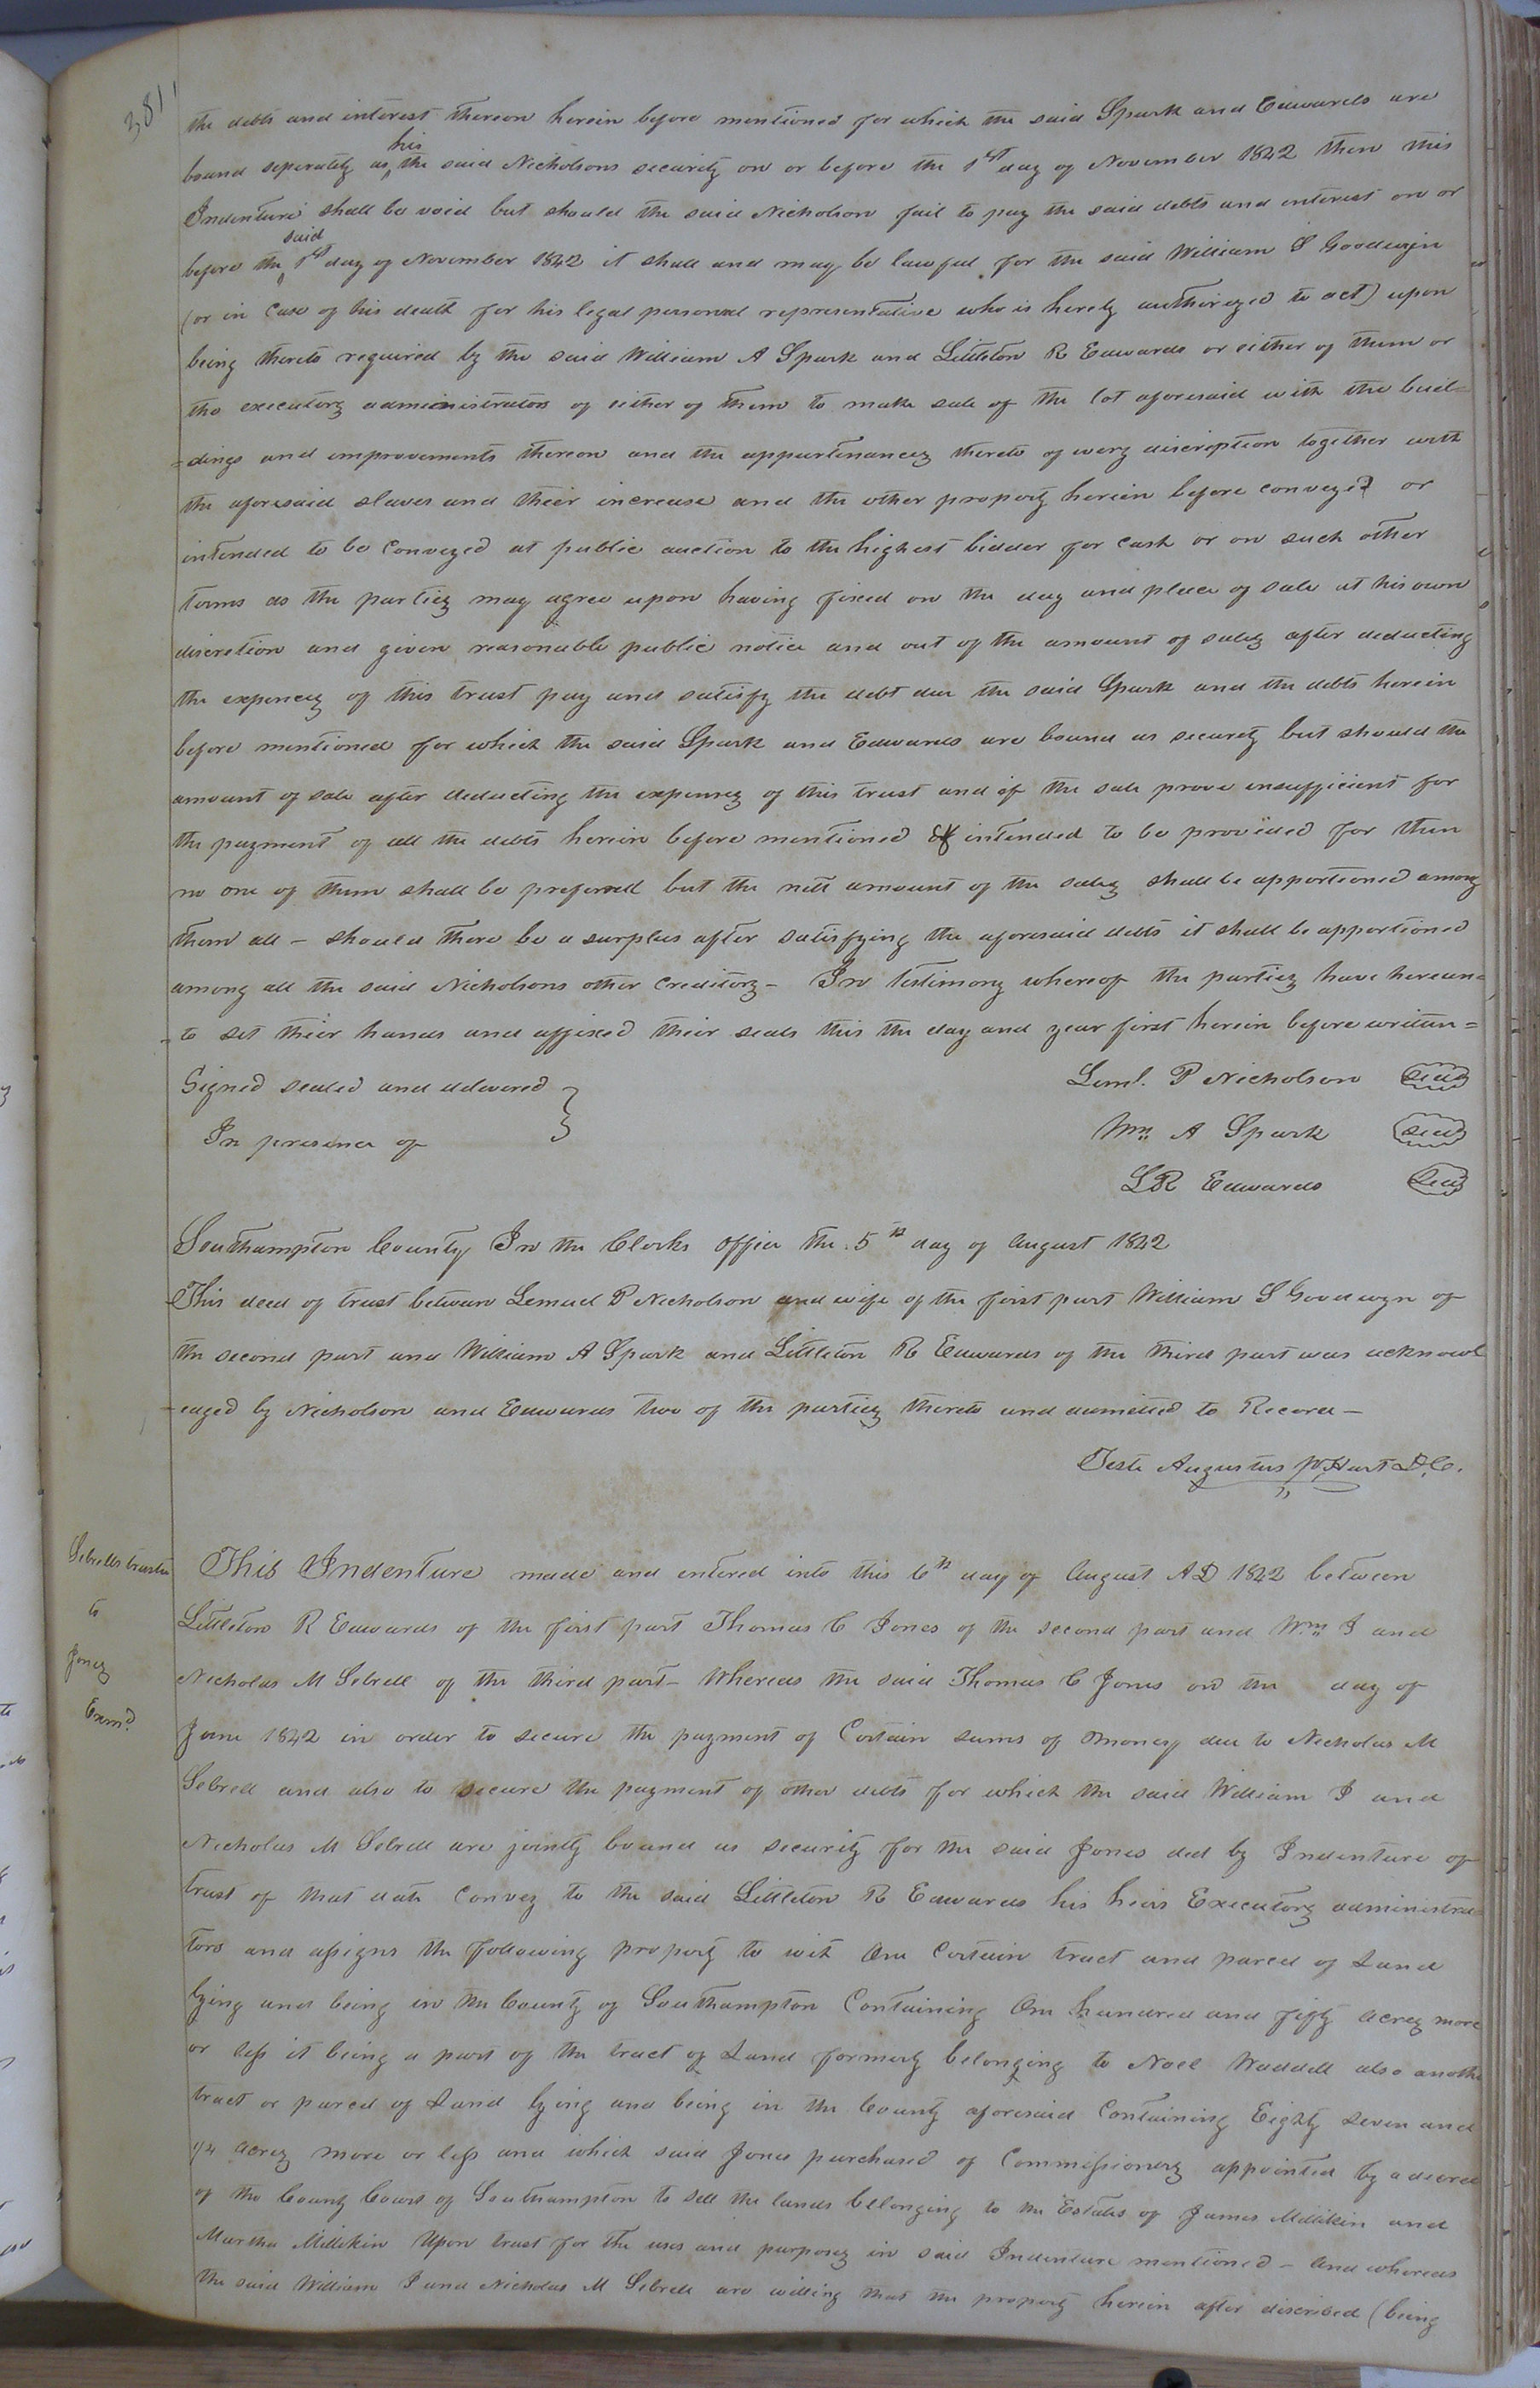 381,
the debts and interest thereon herein before mentioned for which the said Spark and Edwards are
his
bound seperately as ‸ the said Nicholsons security on or before the 1st day of November 1842 then this
Indenture shall be void but should the said Nicholson fail to pay the said debts and interest on or
said
before the ‸ 1st day of November 1842 it shall and may be lawful for the said William S Goodwyn
(or in Case of his death for his legal personal representative who is hereby authorized to act) upon
being thereto required by the said William A Spark and Littleton R Edwards or either of them or
the executors administrators of either of them to make sale of the lot aforesaid with the buil=
=dings and improvements thereon and the appurtenances thereto of every discription together with
the aforesaid slaves and their increase and the other property herein before conveyed or
intended to be Conveyed at public auction to the highest bidder for cash or on such other
terms as the parties may agree upon having fixed on the day and place of sale at his own
discretion and given reasonable public notice and out of the amount of sales after deducting
the expences of this trust pay and satisfy the debt due the said Spark and the debts herein
before mentioned for which the said Spark and Edwards are bound as security but should the
amount of sale after deducting the expenses of this trust and of the sale prove insufficient for
the payment of all the debts herein before mentioned intended to be provided for then
no one of them shall be preferred but the nett amount of the sales shall be apportioned among
them all – should there be a surplus after satisfying the aforesaid debts it shall be apportioned
among all the said Nicholsons other Creditors – In testimony whereof the parties have hereun=
=to set their hands and affixed their seals this the day and year first herein before written =
Signed sealed and delivered } Leml. P Nicholson seal
In presence of Wm A Spark seal
LR Edwards Seal
Southampton County In the Clerks office the 5th day of August 1842
This deed of trust between Lemuel P Nicholson and wife of the first part William S Goodwyn of
the second part and William A Spark and Littleton R Edwards of the third part was acknowl
=edged by Nicholson and Edwards two of the parties thereto and admitted to Record –
Teste Augustus W Hart D.C.
Sebrells trustee
to
Jones
Examd.
This Indenture made and entered into this 6th day of August AD 1842 between
Littleton R Edwards of the first part Thomas C Jones of the second part and Wm J and
Nicholas M Sebrell of the third part – Whereas the said Thomas C Jones on the day of
June 1842 in order to secure the payment of Certain sums of money due to Nicholas M
Sebrell and also to secure the payment of other debts for which the said William J and
Nicholas M Sebrell are jointly bound as security for the said Jones did by Indenture of
trust of that date Convey to the said Littleton R Edwards his heirs Executors administra=
tors and assigns the following property to wit One Certain tract and parcel of Land
lying and being in the County of Southampton Containing One hundred and fifty acres more
or less it being a part of the tract of Land formerly belonging to Noel Waddell also anothe
tract or parcel of Land lying and being in the County aforesaid Containing Eighty seven and
1/4 acres more or less and which said Jones purchased of Commissioners appointed by a decree
of the County Court of Southampton to sell the lands belonging to the Estates of James Millikin and
Martha Millikin Upon trust for the uses and purposes in said Indenture mentioned – And whereas
the said William J and Nicholas M Sebrell are willing that the property herein after discribed (being